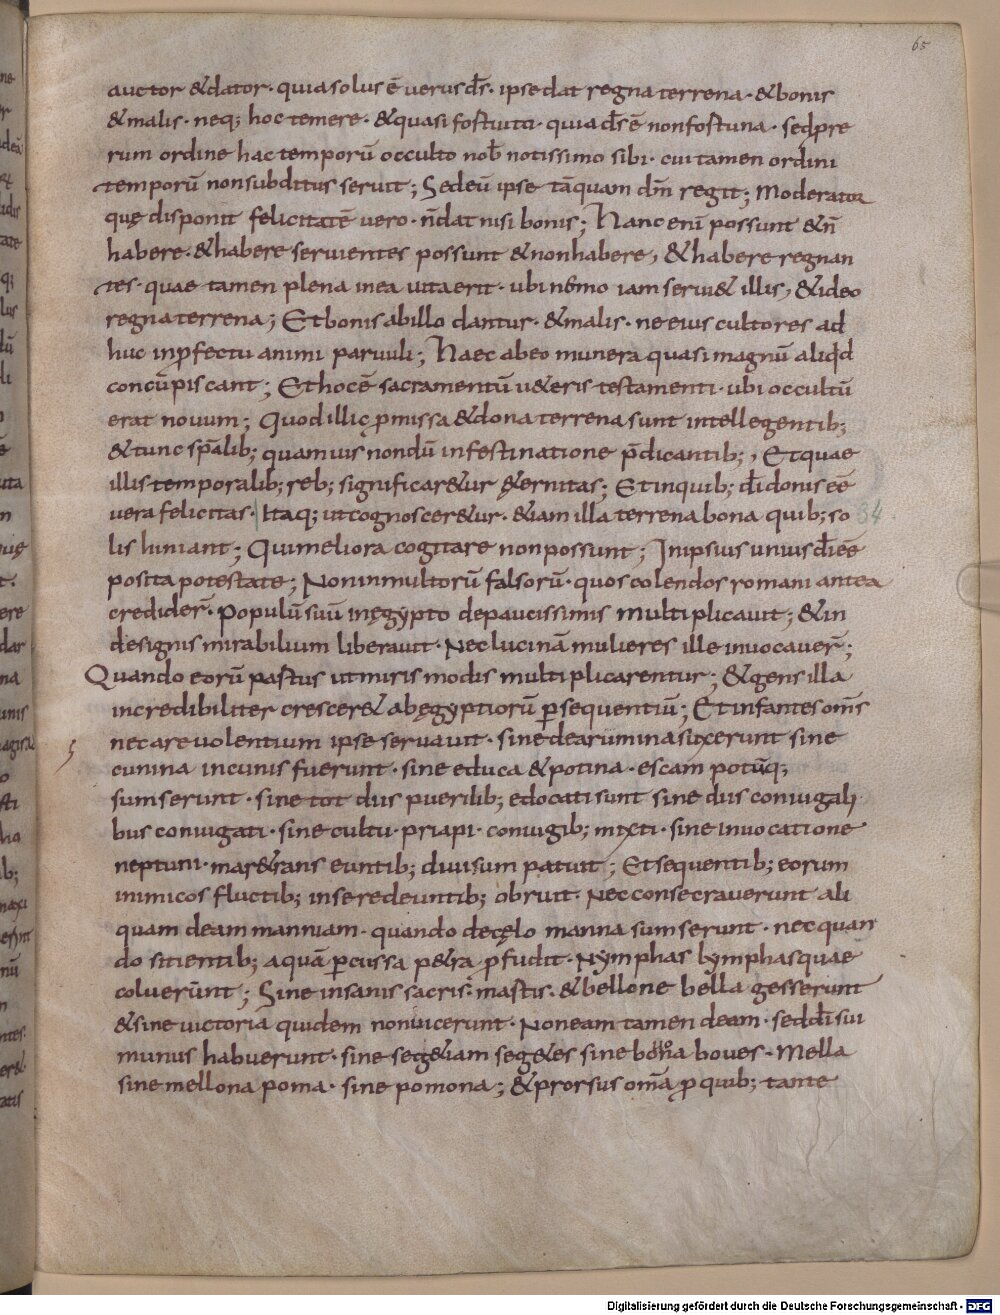 65
auctor &dator· quia solus ē uerus d̄s· ipse dat regna terrena· &bonis
&malis· neq; hoc temere· &quasi fostuita· quia d̄s ē non fostuna· sed p̱re
rum ordine hac temporū occulto nob̄ notissimo sibi· cui tamen ordini
temporū non subditus seruit; Sed eū ipse tāquam dn̄s regit; Moderator
quę disponit felicitatē uero· n̄ dat nisi bonis; Hanc eni possunt &n̄
habere· &habere seruientes possunt &non habere, &habere regnan
tes· quae tamen plena in ea uita erit· ubi nemo iam serui& illis, &ideo
regna terrena; Et bonis ab illo dantur· &malis· ne eius cultores ad
huc in p̱fectu animi paruuli; Haec ab eo munera quasi magnū aliqd
concūpiscant; Et hoc ē sacramentū u&eris testamenti· ubi occultū
erat nouum; Quod illic p̱missa &dona terrena sunt intellegentib;
&tunc sp̄alib; quamuis nondū in festinatione p̄dicantib;, Et quae
illis temporalib; reb; significar&ur &̨ernitas; Et in quib; d̄i donis eē
uera felicitas· Itaq; ut cognoscer&ur· &iam illa terrena bona quib; so 34
lis hiniant; Qui meliora cogitare non possunt; In ipsius unius d̄i eē
posita potestate; Non in multorū falsorū· quos colendos romani antea
credider̄· Populū suū in ęgypto de paucissimis multiplicauit; &in
de signis mirabilium liberauit· Nec lucinā mulieres ille inuocauer̄;
Quando eorū pastus ut miris modis multiplicarentur; &gens illa
incredibiliter crescer& ab ęgyptiorū p̱sequentiū; Et infantes om̄s
necare uolentium ipse seruauit· sine dea rumina suxerunt sine
cunina in cunis fuerunt· sine educa &potina· escam potūq;
sumserunt· sine tot diis puerilib; edocati sunt sine diis coniugali
bus coniugati· sine cultu· priapi· coniugib; mixti· sine inuocatione
neptuni· mar&rans euntib; diuisum patuit; Et sequentib; eorum
inimicos fluctib; in se redeuntib; obruit· Nec consecrauerunt ali
quam deam manniam· quando de cęlo manna sumserunt· nec quan
do sitientib; aquā p̱cussa p&ra p̱fudit· Nymphas lymphasquae
coluerūnt; Sine insanis sacris· mastis· &bellone bella gesserunt
&sine uictoria quidem non uicerunt· Non eam tamen deam· sed d̄i sui
munus habuerunt· sine seg&iam seg&es sine bona boues· Mella
sine mellona poma· sine pomona; &prorsus om̄a p̱ quib; tante